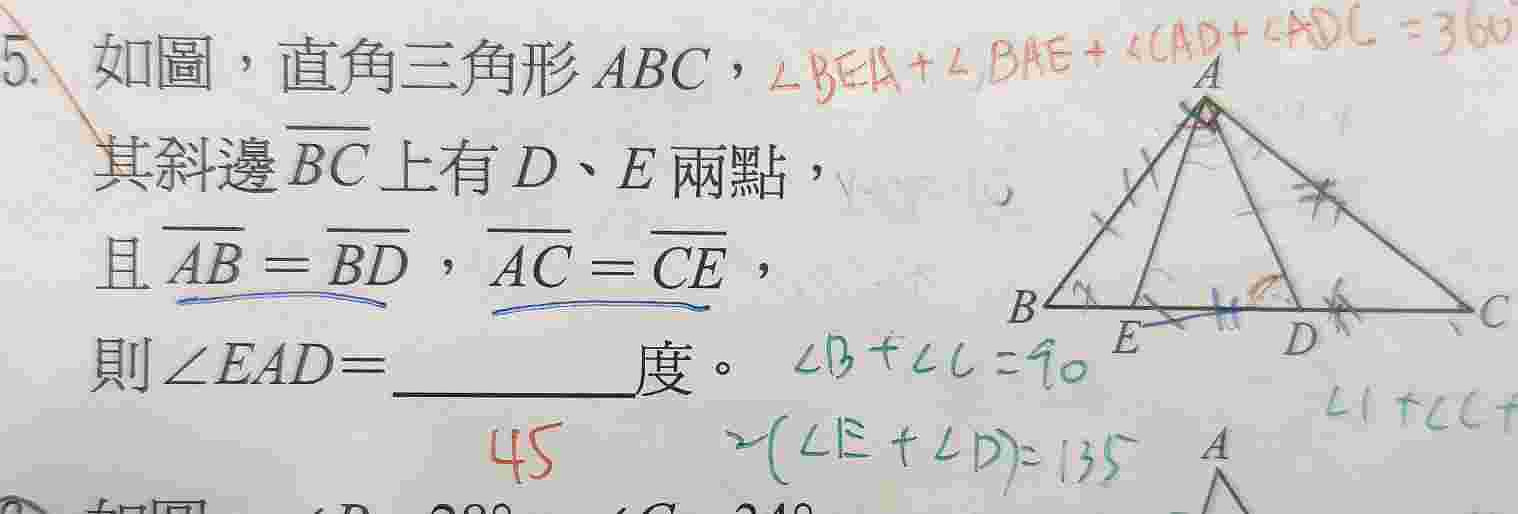 5. 如圖，直角三角形 ABC，
∠BEA + ∠BAE + ∠CAD + ∠ADC = 360°
其斜邊 BC 上有 D、E 兩點，
且 AB = BD，AC = CE，
則∠EAD= 度。
45
A
B
E
D
C
∠B + ∠C = 90
2(∠E + ∠D) = 135
∠1 + ∠C +
A
如圖